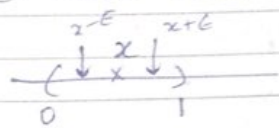 x-ε x+ε
x
( x )
0 1